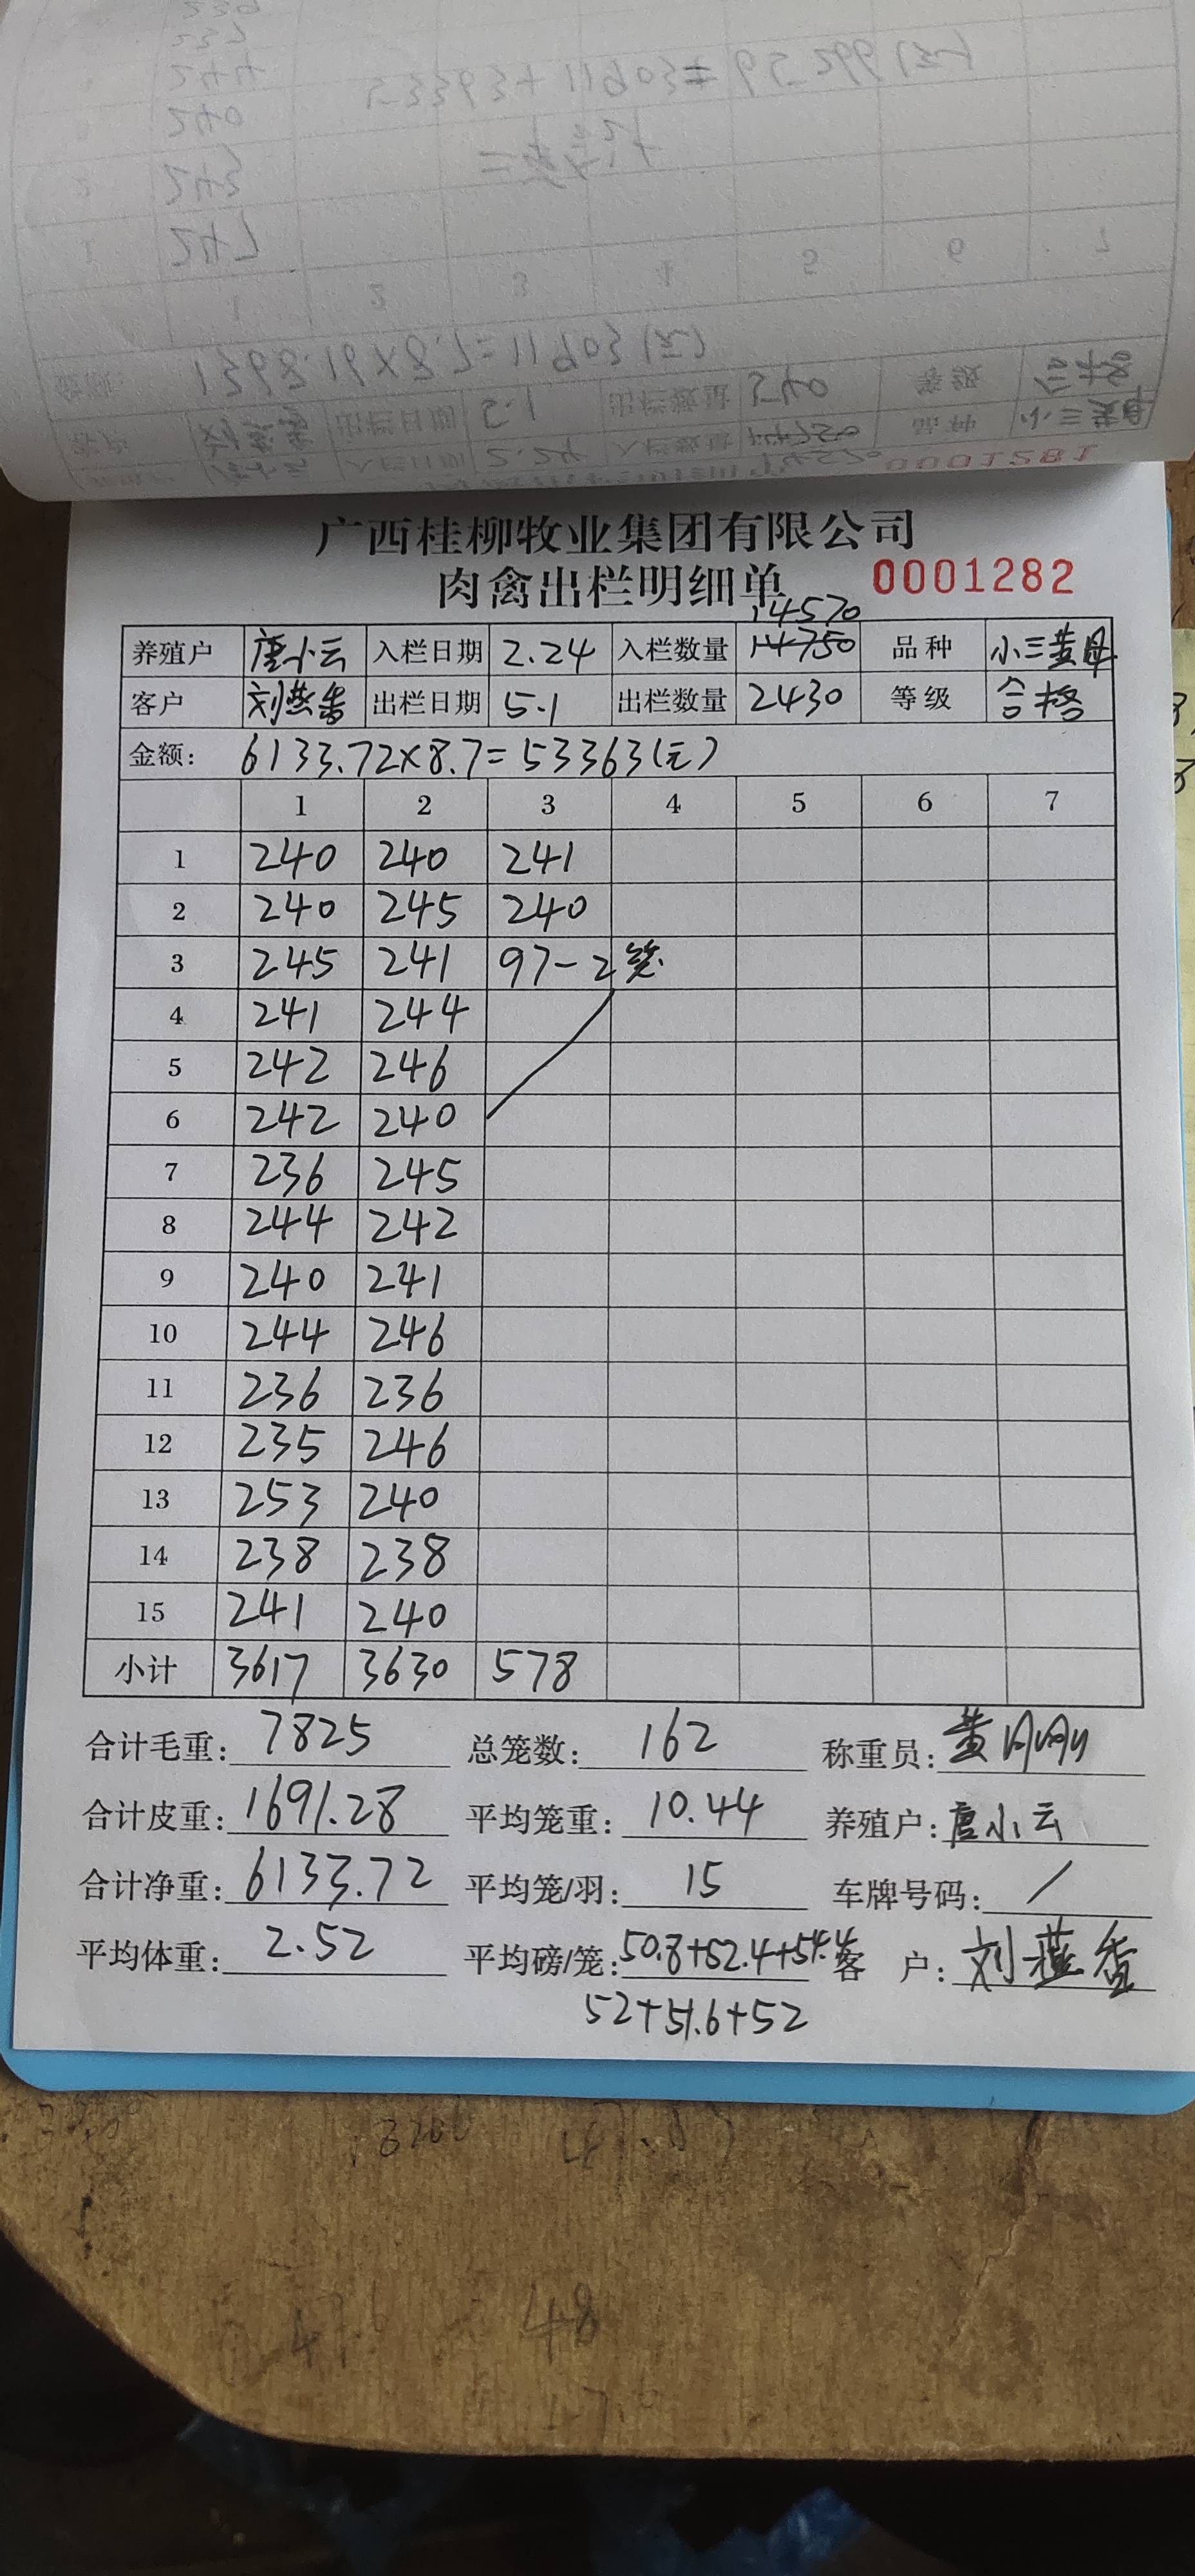 0001281
广西桂柳牧业集团有限公司
肉禽出栏明细单 0001282
14570
养殖户 唐小云 入栏日期 2.24 入栏数量 14750 品种 小三黄母
客户 刘燕香 出栏日期 5.1 出栏数量 2430 等级 合格
金额: 6133.72×8.7=53363(元)
1 2 3 4 5 6 7
1 240 240 241
2 240 245 240
3 245 241 97-2笼
4 241 244
5 242 246
6 242 240
7 236 245
8 244 242
9 240 241
10 244 246
11 236 236
12 235 246
13 253 240
14 238 238
15 241 240
小计 3617 3630 578
合计毛重: 7825 总笼数: 162 称重员: 黄
合计皮重: 1691.28 平均笼重: 10.44 养殖户: 唐小云
合计净重: 6133.72 平均笼/羽: 15 车牌号码: /
平均体重: 2.52 平均磅/笼: 50.8+52.4+54.4 客 户: 刘燕香
52+51.6+52
48